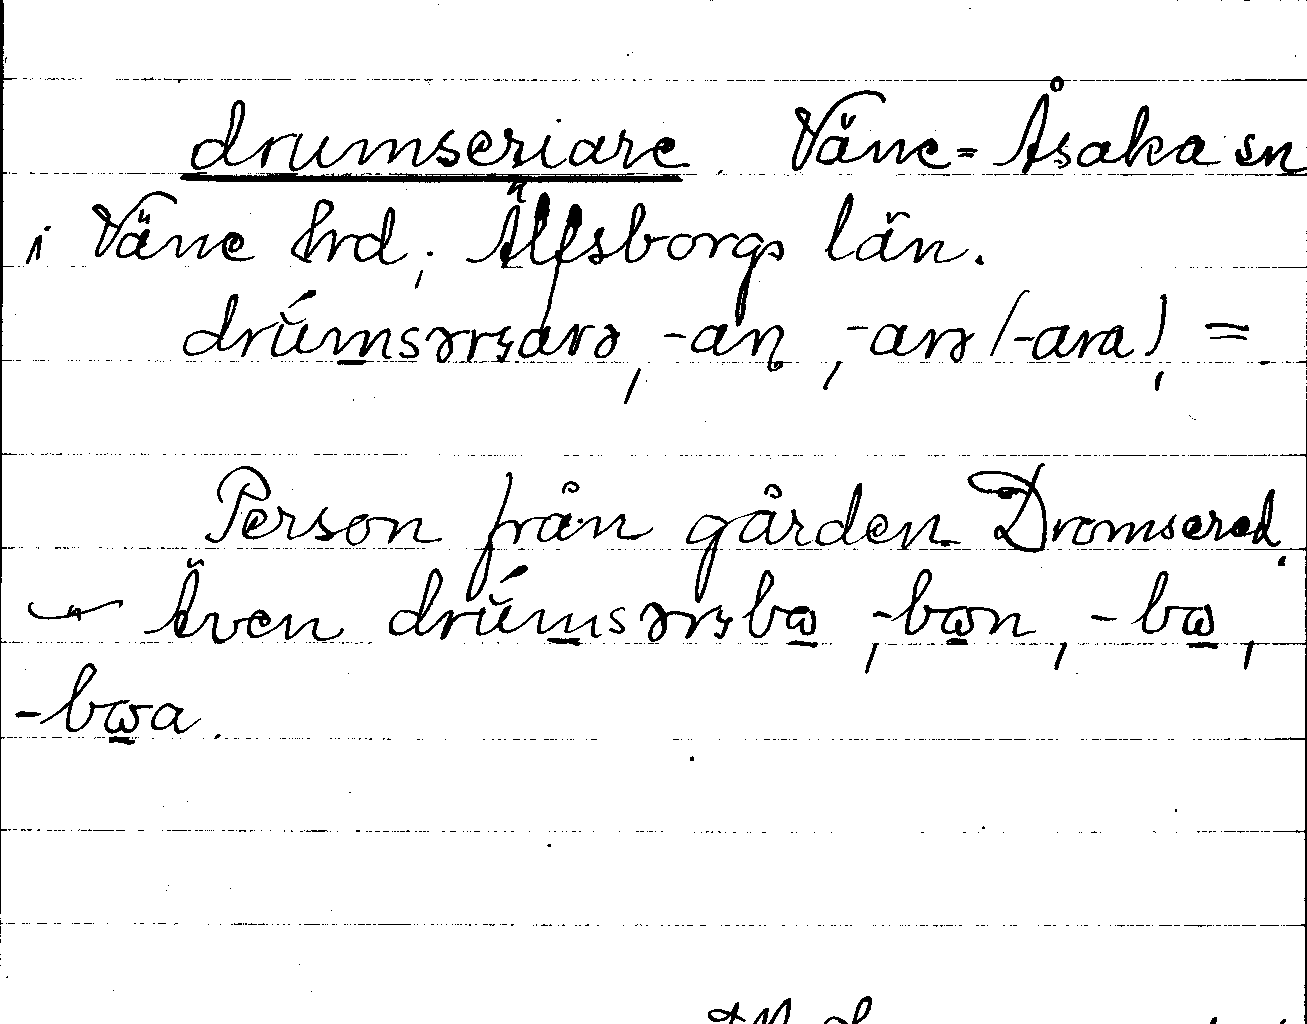 drumseriare Väne-Åsaka sn
i Väne hrd, Älfsborgs län.
drúmsərsarə, -aɳ, -arə (-ara), =
Person från gården Dromsered.
— Även drúmsərsbɷ, -bɷn, -bɷ,
-bɷa.